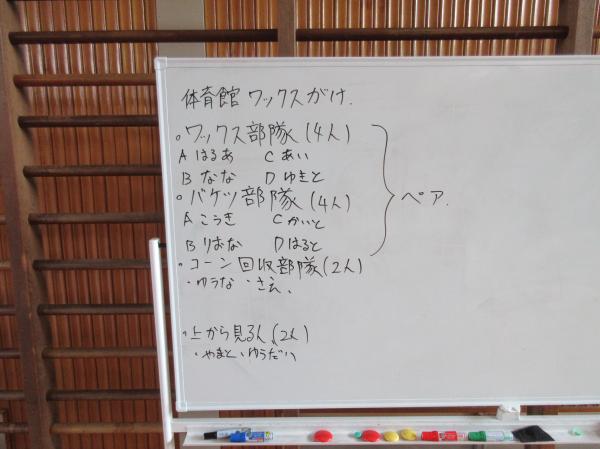 体育館 ワックスがけ.
○ワックス部隊(4人)
A はるあ C あい
B なな D ゆきと
○バケツ部隊(4人)
A こうき C かいと
B りおな D はると
ペア.
○コーン回収部隊(2人)
・ゆうな ・さえ、
○上から見る人(2人)
・やまと・ゆうだい